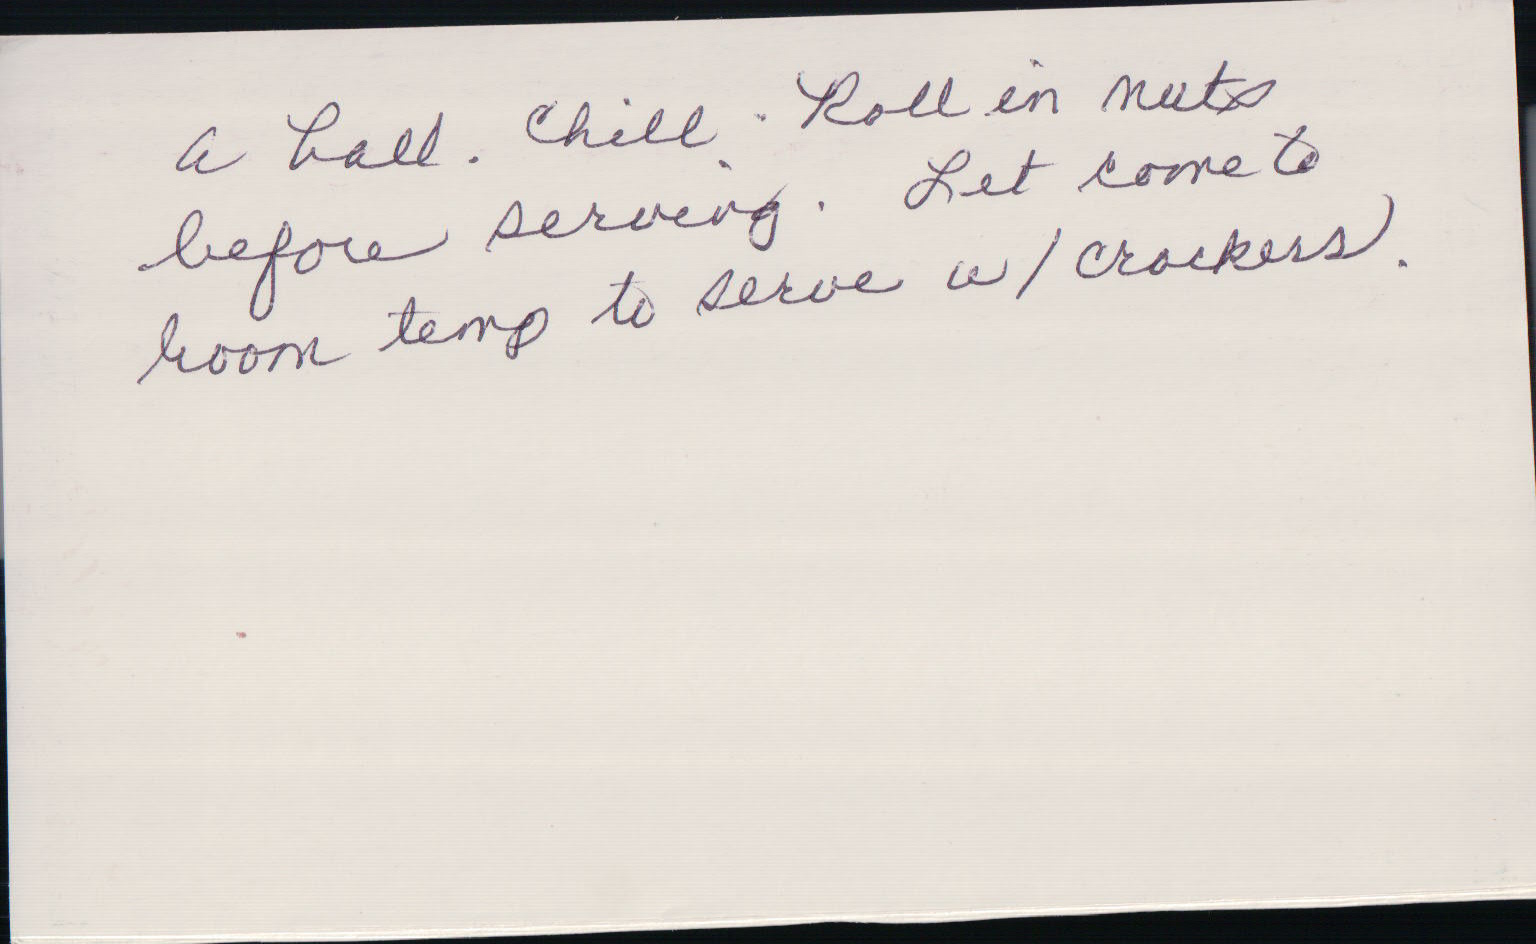 a ball. Chill. Roll in nuts
before serving. Let come to
room temp to serve w/ crackers.